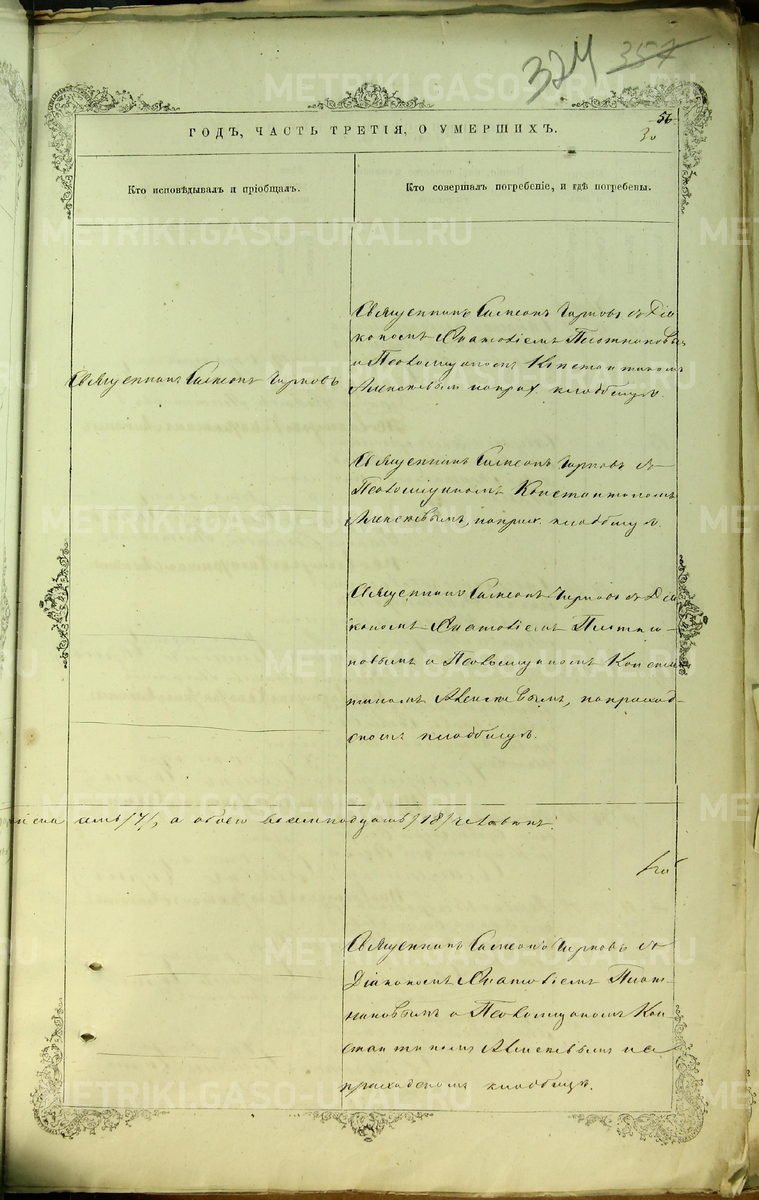 324 357
56
30
ГОДЪ, ЧАСТЬ ТРЕТІЯ, О УМЕРШИХЪ.
Кто исповѣдывалъ и пріобщалъ.
Кто совершалъ погребеніе, и гдѣ погребены.
Священникъ Симеонъ
Священникъ Симеонъ съ Діа
кономъ
и Псаломщикомъ Константиномъ
Алексѣевымъ на прих. кладбищѣ.
Священникъ Симеонъ съ
Псаломщикомъ Константиномъ
Алексѣевымъ, на прих. кладбищѣ.
Священникъ Симеонъ съ Діа
кономъ
новымъ и Псаломщикомъ Конста
тиномъ Алексѣевымъ, на приход-
скомъ кладбищѣ.
семь /7/, а обоего восемнадцать /18/ человѣкъ.
Священникъ Симеонъ съ
Діакономъ
новымъ и Псаломщикомъ Кон
стантиномъ Алексѣевымъ на
приходскомъ кладбищѣ.
METRIKI.GASO-URAL.RU